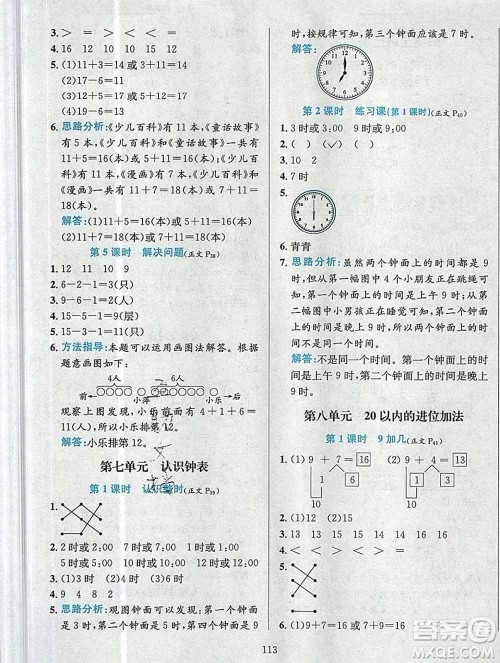 3. > = > = < < > <
4. 16 12 15 15 16 16
5. (1)11−1=11或
(2)17−1=16或
(3)15−1=11或
(4)19−
6. 思路分析:《少儿百科》有11本,《童话故事》
有5本,《少儿百科》和《童话故事》一共有
11+5=16(本)或5+11=16(本);《少儿百科》
有11本,《漫画》有7本,《少儿百科》和
《漫画》一共有11+7=18(本)或7+11=18(本)。
解答:(1)11+5=16(本)或5+11=16(本)
(2)11+7=18(本)或7+11=18(本)
第5课时 解决问题(正文P38)
1. 12 11 10 9
3. 9−6−2−1=3(只)
4. 6−2−1=3(只)
5. 15−5−1=9(只)
6. 方法指导:本题可以运用画图法解答。根据
题意画图如下:
4人 6人
前 小萍 小乐 后
观察上图发现:4+1+6+1=12,小乐排
第12。
解答:小乐排第12。
第七单元 认识钟表
第1课时 认识整时(正文P39)
1.
2. 2时或2:00 7时或7:00 5时或5:00
12时或12:00 9时或9:00 6时或6:00
3. (2)(1)(3)(4)
4. 3 4 8 7时
5. 思路分析:观图钟面可以发现:第一个钟面
时,按规律可知,第三个钟面应该是7时。
解答:
第2课时 练习课(第1课时)(正文P40)
1. 3时或3:00 9时或9:00
2. ( ) (√) ( )
3. 10 2
4. 7时
5.
6. 青青
7. 思路分析:虽然两个钟面上的时间都是9
时,但第一幅图中小朋友正在跳绳可知
第一个钟面上的时间是上午9时;第二幅
图中小男孩正在睡觉可知,第二个钟面上
的时间是晚上9时。
解答:不是同一个时间。第一个钟面上的时
间是上午9时,第二个钟面上的时间是晚上
9时。
第八单元 20以内的进位加法
第1课时 9加几(正文P41)
1. (1)9+7=16 (2)9+4=13
1 6 1 3
10 10
2. (1)12 (2)15
3. 14 11 13 15 16 13
4. > > = < < >
5.
6. (1)9+7=16(只)或7+9=16(只)
113
答案圈
MXQE.COM